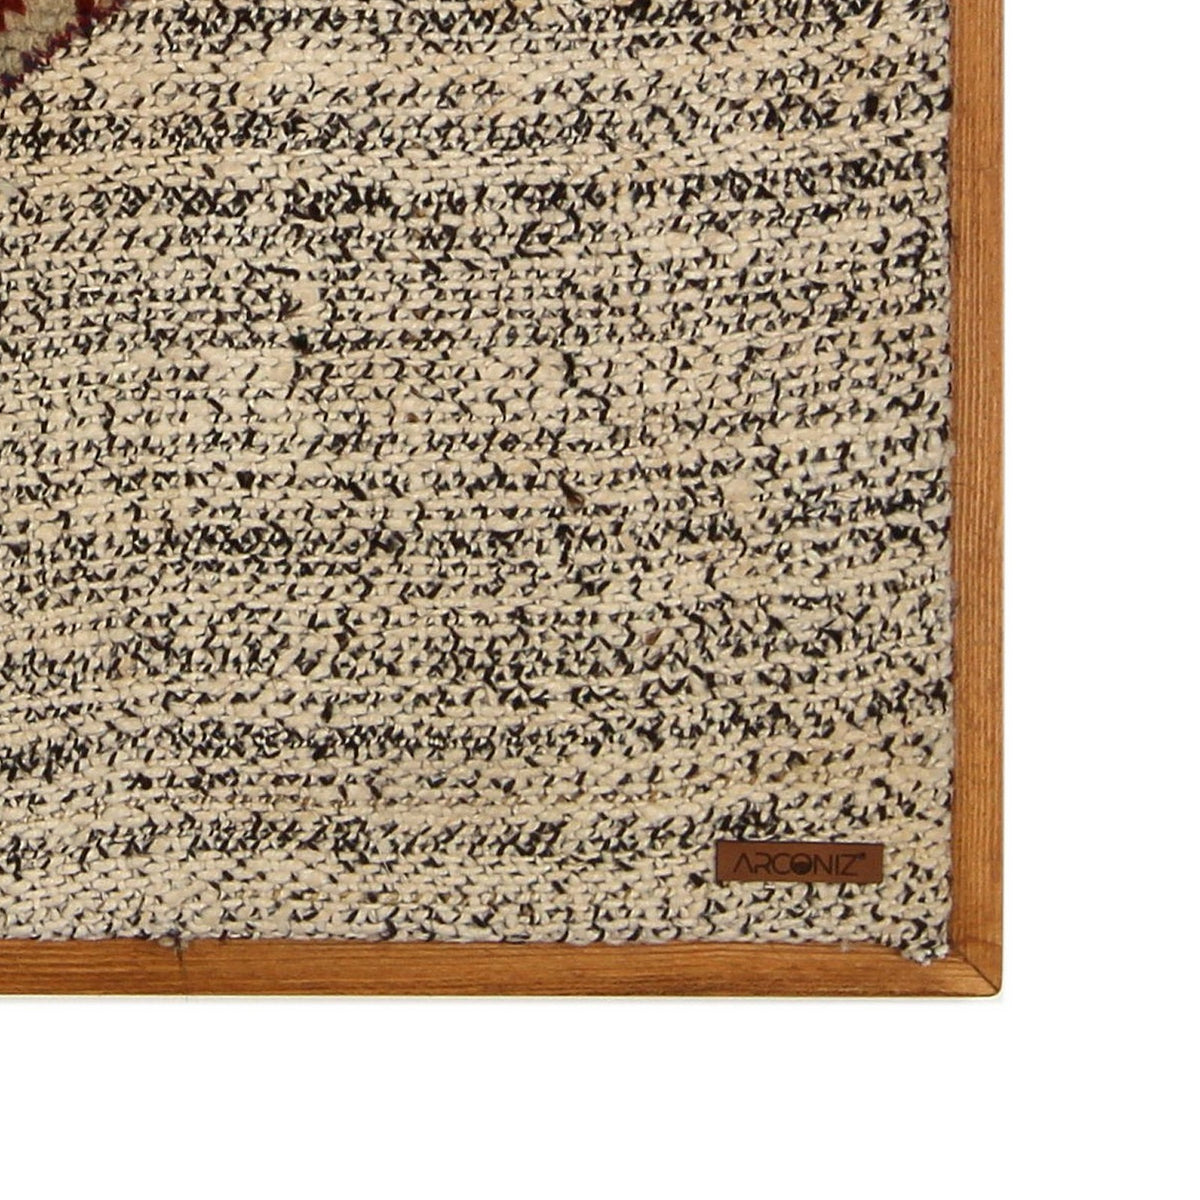 ARCONIZ®